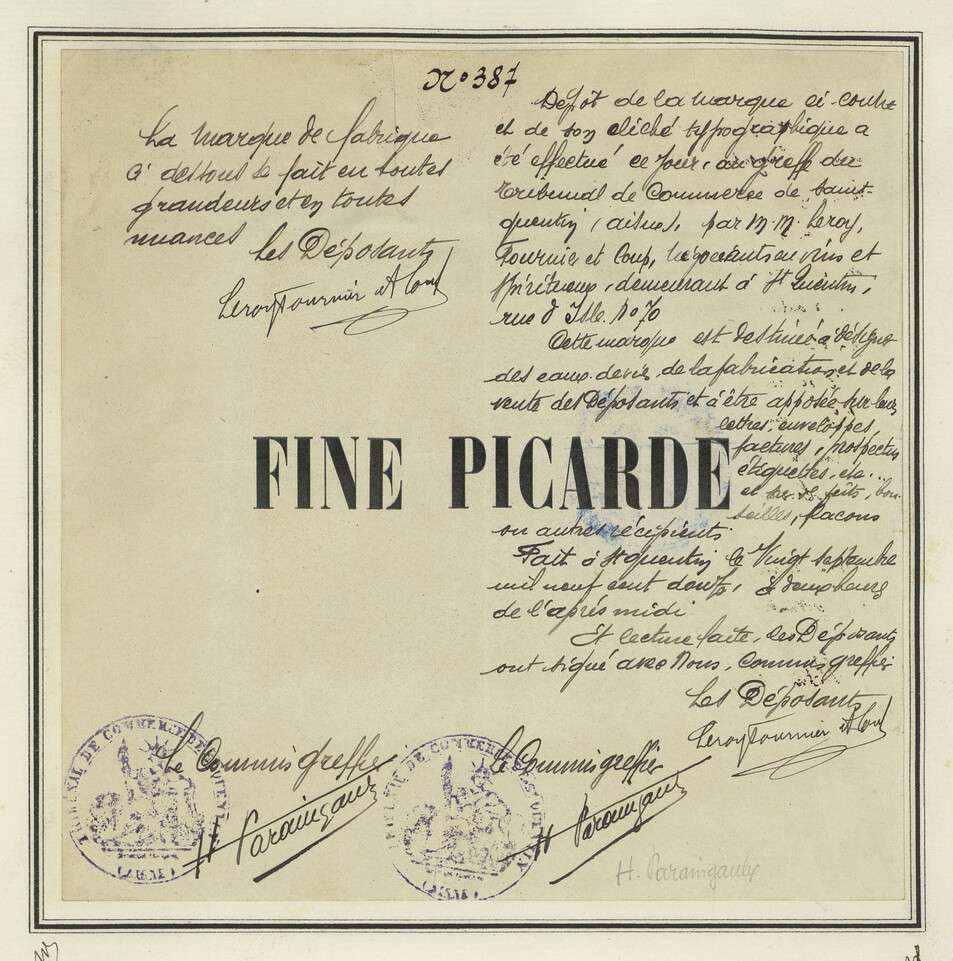 N° 387
La marque de fabrique
ci dessous se fait en toutes
grandeurs et en toutes
nuances
Les Déposants
Leroy Fournier et Coup
Dépôt de la marque ci-contre
et de son cliché typographique a
été effectué ce jour, au greffe du
Tribunal de Commerce de Saint-
quentin (aisne), par M.M. Leroy,
Fournier et Coup, négociants en vins et
Spiritueux, demeurant à St Quentin,
rue d'Isle. N° 70
Cette marque est destinée à désigner
des eaux-de-vie de la fabrication et de la
vente des Déposants et à être apposée sur leurs
lettres, enveloppes,
factures, prospectus
étiquettes, etc..
et sur fûts, bou-
teilles, flacons
ou autres récipients
FINE PICARDE
Fait à St quentin le Vingt septembre
mil neuf cent douze, à deux heures
de l'après midi
Et lecture faite, les Déposants
ont signé avec Nous, Commis greffier
Les Déposants
Leroy Fournier et Coup
Le Commis greffier
H Paraingaux
Le Commis greffier
H Paraingaux
H. Paraingaux
TRIBUNAL DE COMMERCE DE ST QUENTIN
(AISNE)
TRIBUNAL DE COMMERCE DE ST QUENTIN
(AISNE)